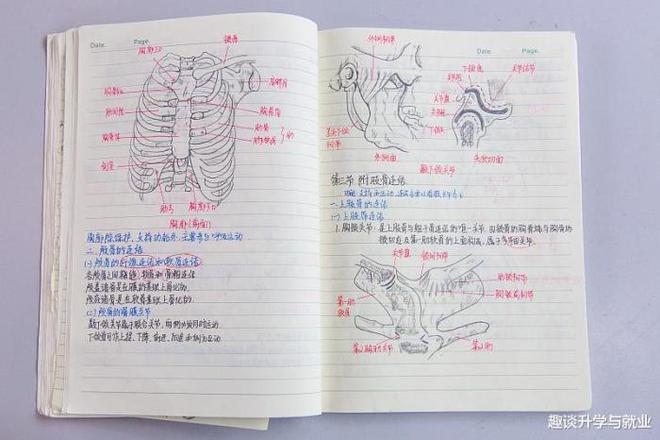 Date
Page
胸廓上口
锁骨
肩胛骨
胸骨柄
肋间隙
胸骨角
胸骨体
肋骨
肋软骨
剑突
肋弓
胸廓下口
胸廓(前面)
胸廓除保护、支持功能外,主要参与呼吸运动
二、颅骨的连结
(一)颅骨的纤维连结和软骨连结
各颅骨之间借缝、软骨和骨相连结
颅盖诸骨是在膜的基础上骨化的
颅底诸骨是在软骨基础上骨化的.
(二)颅骨的滑膜关节
颞下颌关节属于联合关节,两侧必须同时运动
下颌骨可作上提、下降、前进、后退和侧方运动
Date
Page
外侧韧带
下颌窝
关节结节
关节盘
茎突下颌
韧带
外侧面
矢状切面
颞下颌关节
第三节 附肢骨连结
一.上肢骨的连结
(一)上肢带连结
1.胸锁关节:是上肢骨与躯干骨连结的唯一关节,由锁骨的胸骨端与胸骨的
锁切迹及第一肋软骨的上面构成,属于多轴关节
关节盘
锁间韧带
肋锁韧带
胸锁前韧带
第一肋
软骨
第2胸肋关节
第2肋
趣谈升学与就业